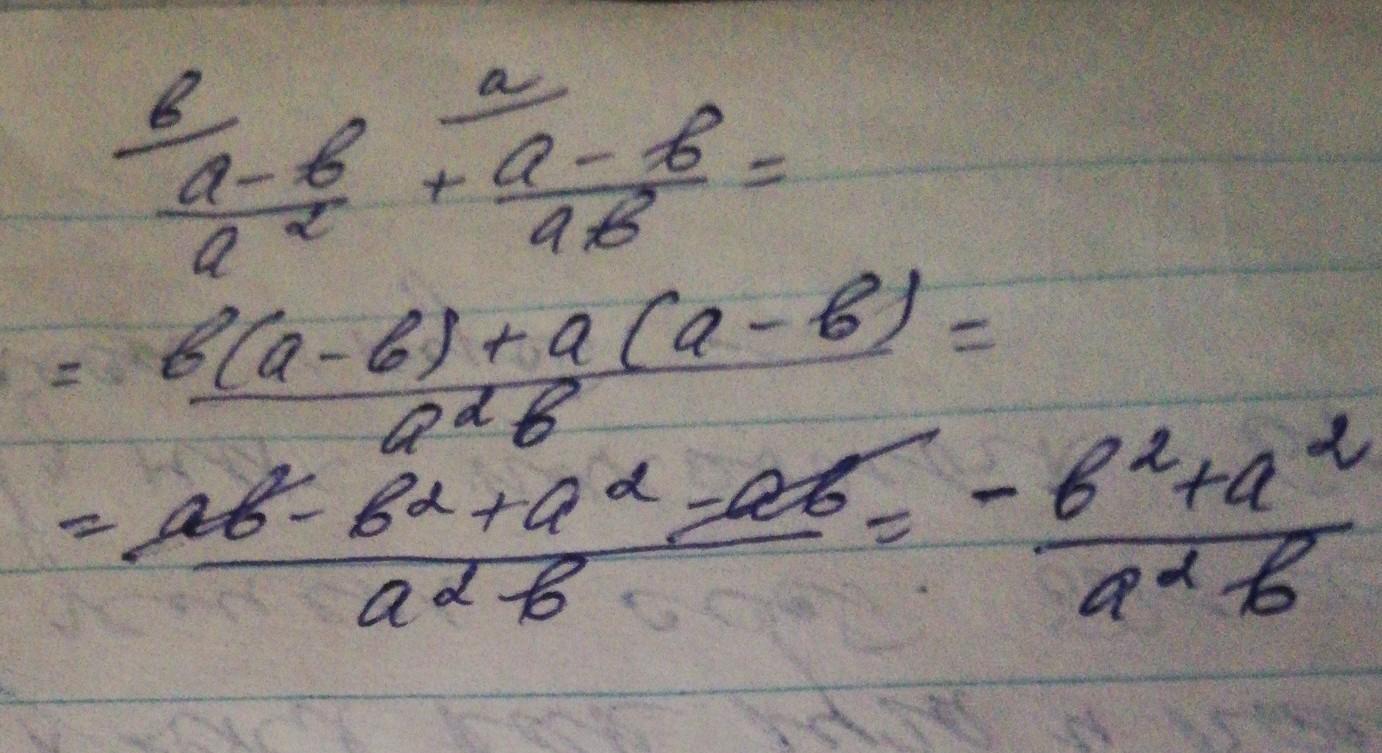 b a
(a-b)/a² + (a-b)/(ab) =
= (b(a-b)+a(a-b))/(a²b) =
= (ab-b²+a²-ab)/(a²b) = (-b²+a²)/(a²b)